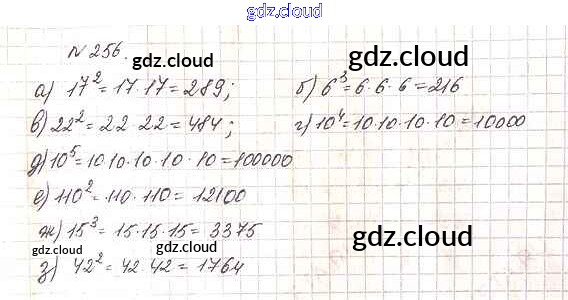 gdz.cloud
№ 256.
gdz.cloud
gdz.cloud
а) 17² = 17·17 = 289; б) 6³ = 6·6·6 = 216
в) 22² = 22·22 = 484; г) 10⁴ = 10·10·10·10 = 10000
д) 10⁵ = 10 10·10·10·10 = 100000
е) 110² = 110·110 = 12100
ж) 15³ = 15·15·15 = 3375
gdz.cloud
gdz.cloud
gdz.cloud
з) 42² = 42 42 = 1764